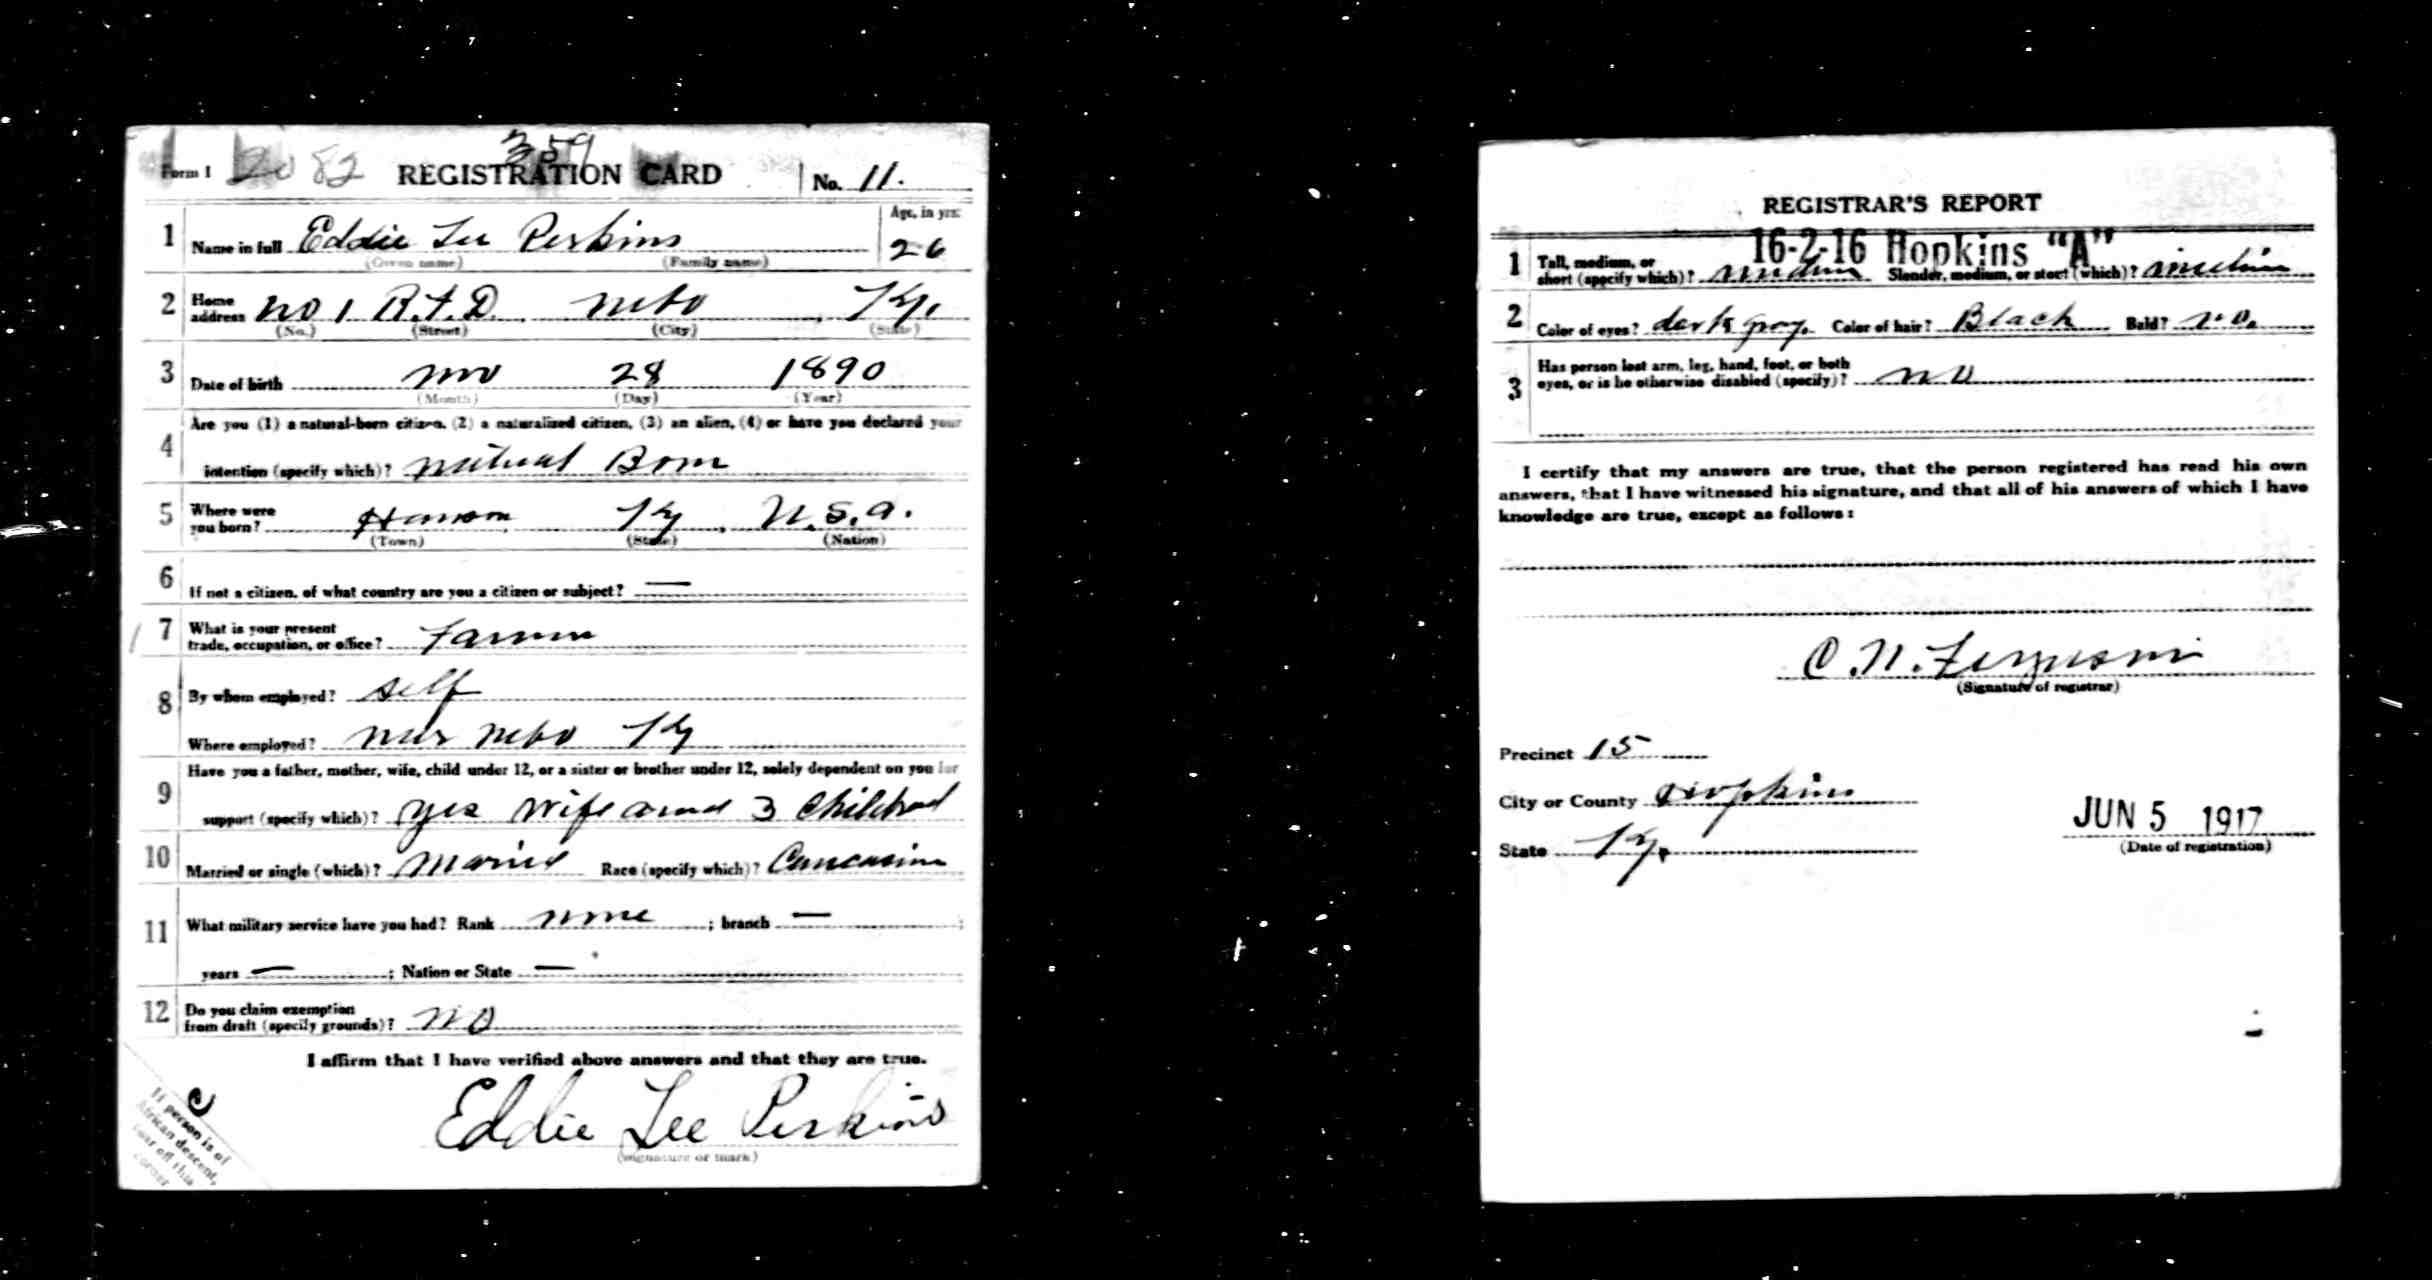 359
Form 1 2082 REGISTRATION CARD No. 11.
1 Name in full Eddie Lee Perkins Age, in yrs. 26
(Given name) (Family name)
2 Home address No 1 R.F.D. Nebo Ky.
(No.) (Street) (City) (State)
3 Date of birth 28 1890
(Month) (Day) (Year)
4 Are you (1) a natural-born citizen, (2) a naturalized citizen, (3) an alien, (4) or have you declared your
intention (specify which)? Natural Born
5 Where were you born? Hanson Ky, U.S.A.
(Town) (State) (Nation)
6 If not a citizen, of what country are you a citizen or subject? —
7 What is your present trade, occupation, or office? Farmer
8 By whom employed? self
Where employed? near Nebo Ky
9 Have you a father, mother, wife, child under 12, or a sister or brother under 12, solely dependent on you for
support (specify which)? yes Wife and 3 Children
10 Married or single (which)? Married Race (specify which)? Caucasian
11 What military service have you had? Rank none ; branch — ;
years — ; Nation or State —
12 Do you claim exemption from draft (specify grounds)? no
I affirm that I have verified above answers and that they are true.
Eddie Lee Perkins
(Signature or mark)
If person is of
African descent,
tear off this
corner
REGISTRAR'S REPORT
16-2-16 Hopkins "A"
1 Tall, medium, or short (specify which)? medium Slender, medium, or stout (which)? medium
2 Color of eyes? dark gray. Color of hair? Black Bald? no.
3 Has person lost arm, leg, hand, foot, or both
eyes, or is he otherwise disabled (specify)? no
I certify that my answers are true, that the person registered has read his own
answers, that I have witnessed his signature, and that all of his answers of which I have
knowledge are true, except as follows:
C. N. Ferguson
(Signature of registrar)
Precinct 15
City or County Hopkins
State Ky.
JUN 5 1917
(Date of registration)